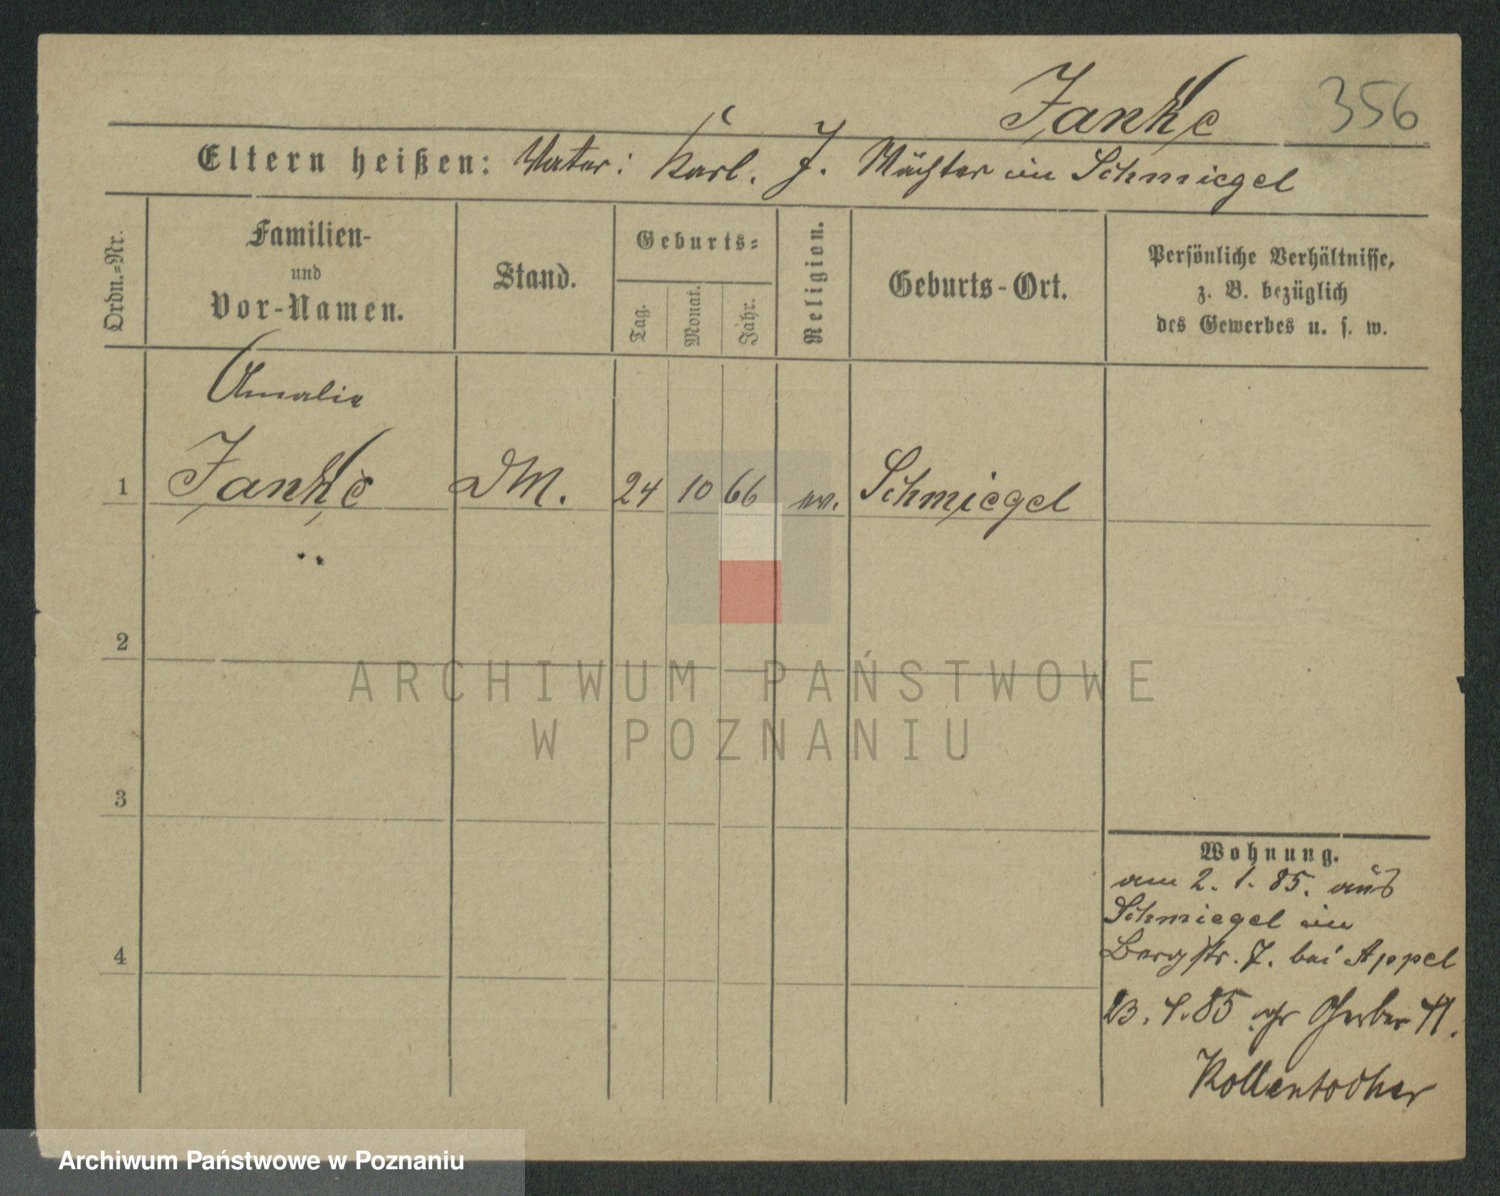 Janke 356
Eltern heißen: Vater: Karl. J. Wächter in Schmiegel
Ordn.-Nr.
Familien-
und
Vor-Namen.
Stand.
Geburts-
Tag.
Monat.
Jahr.
Religion.
Geburts-Ort.
Persönliche Verhältnisse,
z. B. bezüglich
des Gewerbes u. s. w.
Amalie
1 Janke DM. 24 10 66 ev. Schmiegel
2
ARCHIWUM PAŃSTWOWE
W POZNANIU
3
4
Wohnung.
am 2. 1. 85. aus
Schmiegel in
Bergstr. 7. bei Appel
23. 4. 85 gr Gerber 41.
Archiwum Państwowe w Poznaniu